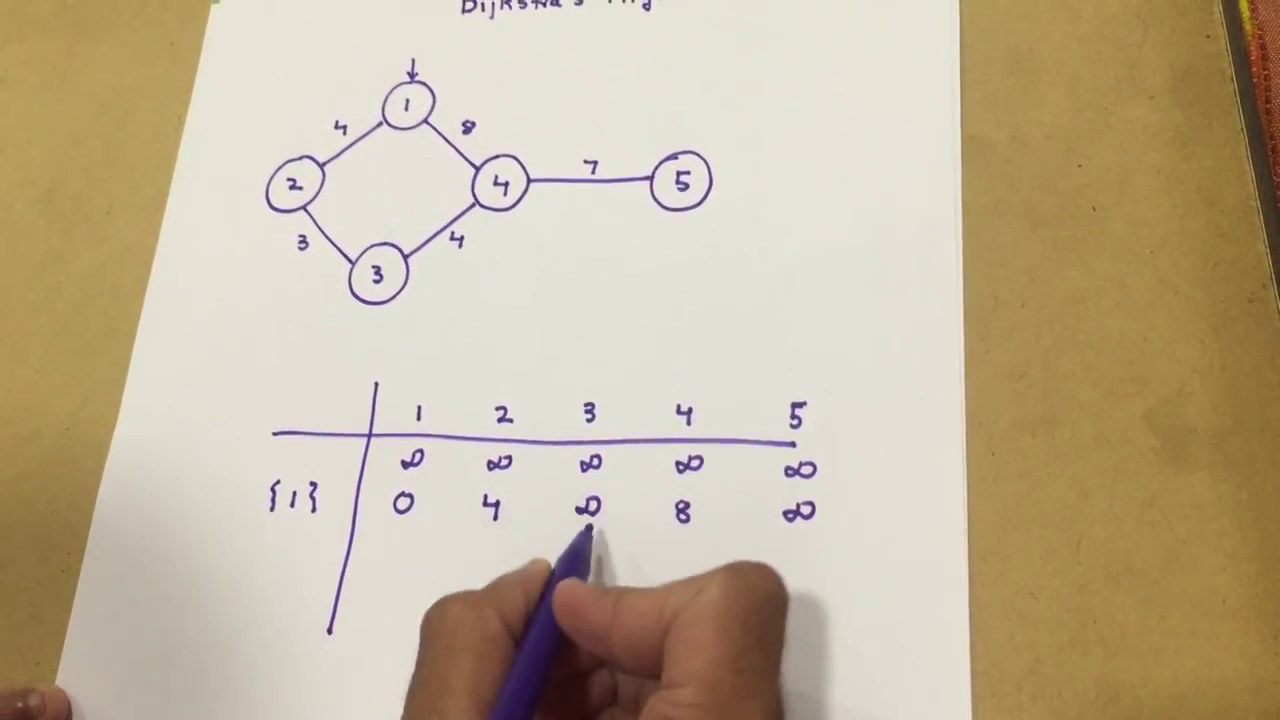 Dijkstra's Alg
1
4 8
2 4 7 5
3 4
3
1 2 3 4 5
∞ ∞ ∞ ∞ ∞
{1} 0 4 ∞ 8 ∞